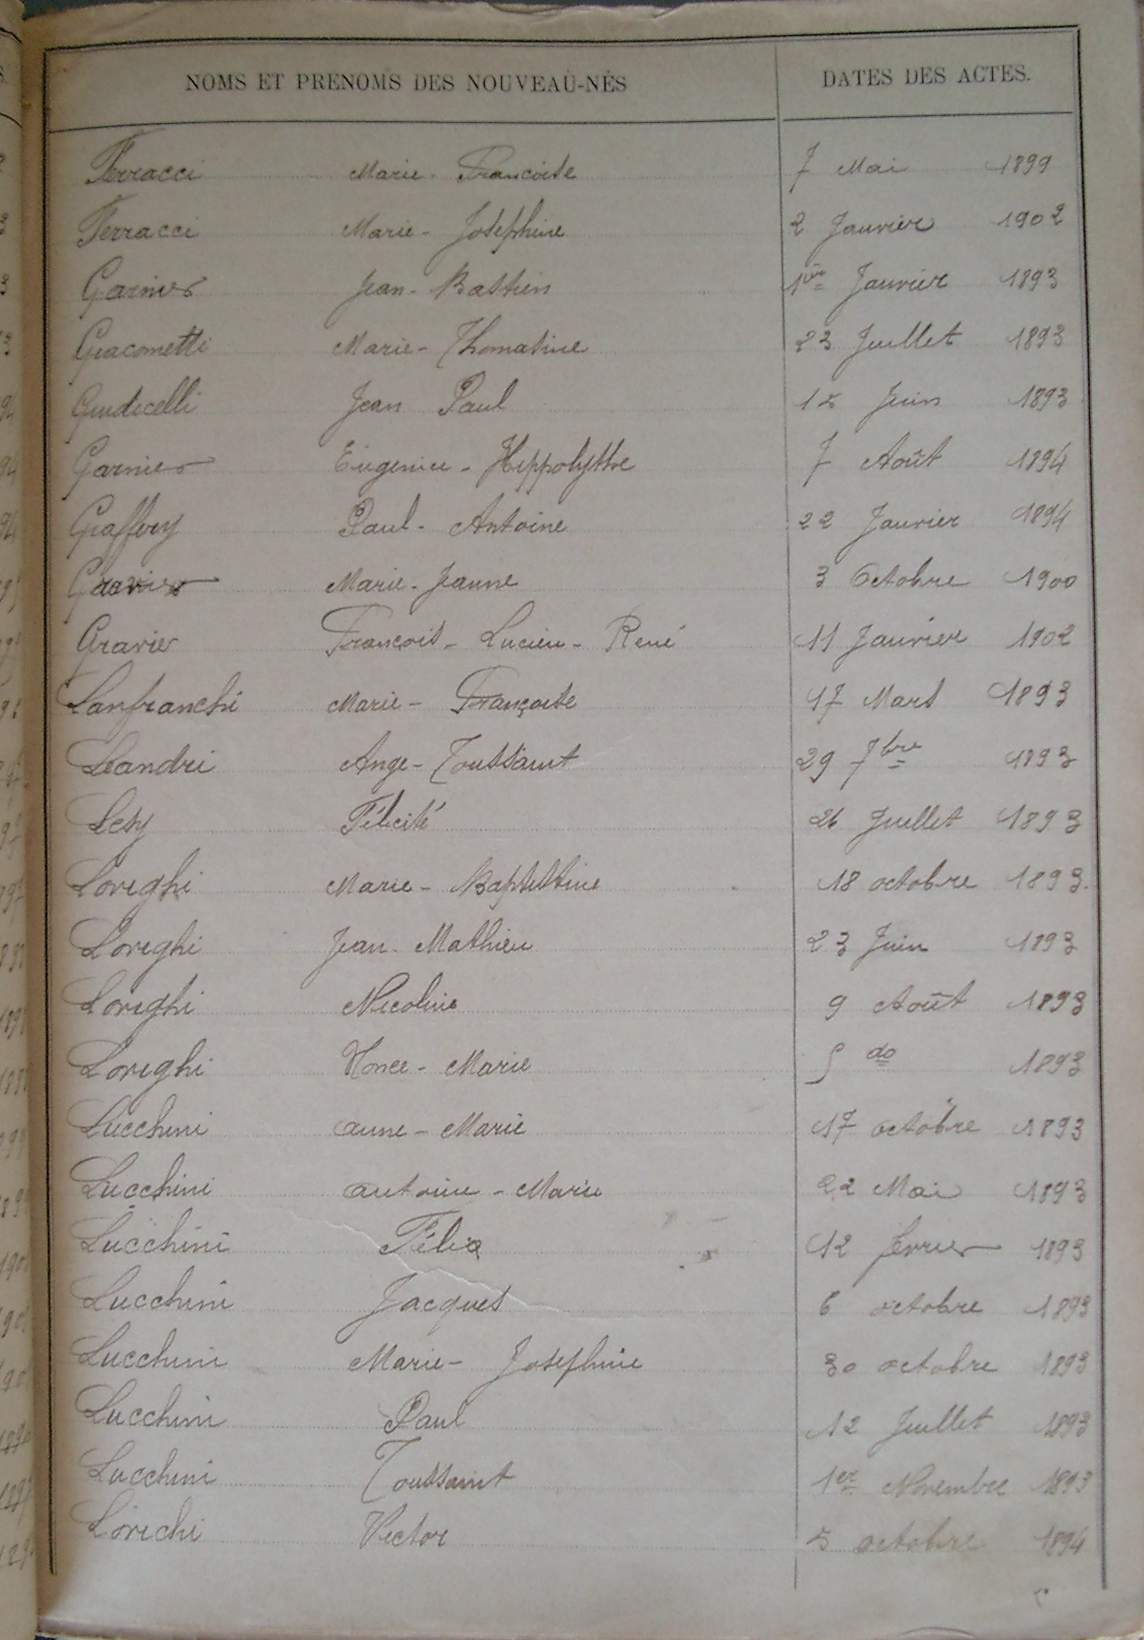 NOMS ET PRENOMS DES NOUVEAU-NÉS DATES DES ACTES.
Ferracci Marie-Francoise 7 Mai 1899
Ferracci Marie-Josephine 2 Janvier 1902
Garnier Jean-Bastien 1er Janvier 1893
Giacometti Marie-Thomasine 23 Juillet 1893
Giudicelli Jean Paul 15 Juin 1893
Garnier Eugenie-Hippolythe 7 Août 1894
Graffery Paul-Antoine 22 Janvier 1894
Marie-Jeanne 3 Octobre 1900
Gravier Francois-Lucien-René 11 Janvier 1902
Lanfranchi Marie-Françoise 17 Mars 1893
Leandri Ange-Toussaint 29 7bre 1893
Félicité 26 Juillet 1893
Loreghi Marie-Baptistine 18 octobre 1893.
Loreghi Jean-Mathieu 23 Juin 1893
Loreghi Nicoline 9 Août 1893
Loreghi Marie do 1893
Lucchini anne-Marie 17 octobre 1893
Lucchini antoine-Marie 22 Mai 1893
Lucchini Félix 12 fevrier 1893
Lucchini Jacques 6 octobre 1893
Lucchini Marie-Josephine 30 octobre 1893
Lucchini Paul 12 Juillet 1893
Lucchini Toussaint 1er Novembre 1893
Lorichi Victor 5 octobre 1894